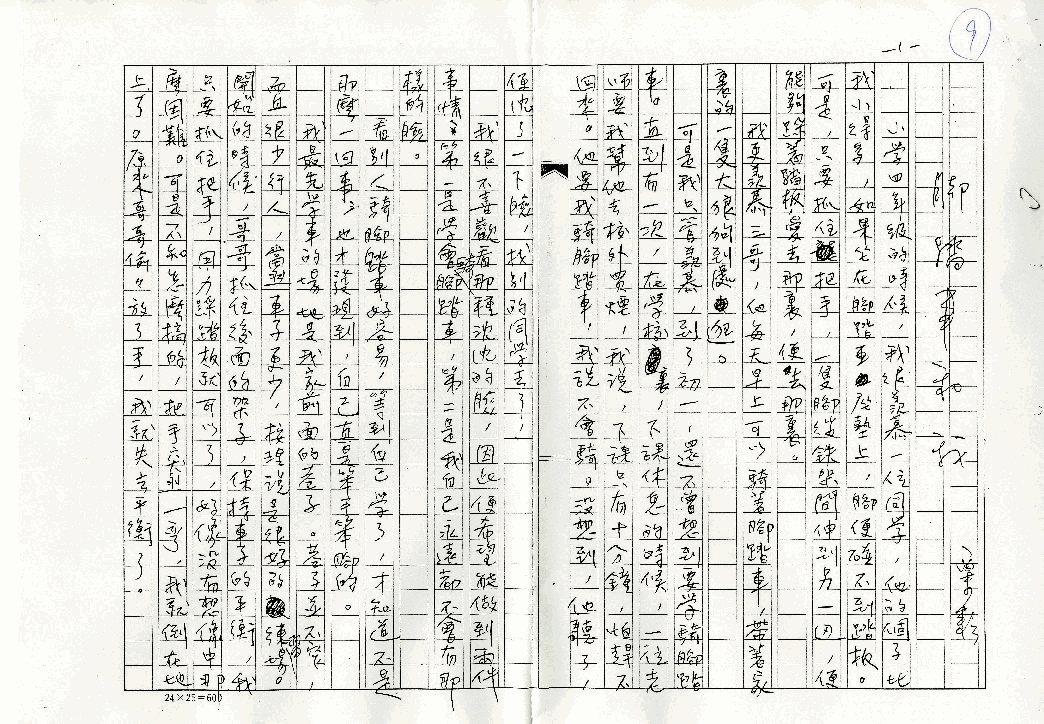 -1-
9
腳踏車和我
小學四年級的時候，我很羨慕一位同學，他的個子比
我小得多，如果坐在腳踏車座墊上，腳便碰不到踏板。
可是，只要抓住把手，一隻腳從鉄架間伸到另一邊，便
能夠踩著踏板，愛去那裏，便去那裏。
我更羨慕三哥，他每天早上可以騎著腳踏車，帶著家
裏的一隻大狼狗到處狂。
可是我只管羨慕，到了初一，還不曾想到要學騎腳踏
車。直到有一次，在學校裏，下課休息的時候，一位老
師要我幫他去校外買煙，我說，下課只有十分鐘，怕趕不
回來。他要我騎腳踏車，我說不會騎。沒想到，他聽了，
便沈了一下臉，找別的同學去了！
我很不喜歡看那種沈沈的臉，因此便希望能做到兩件
事情：第一是學會騎腳踏車，第二是我自己永遠都不會有那
樣的臉。
看別人騎腳踏車好容易，等到自己學了，才知道不是
那麼一回事，也才發現到，自己真是笨手笨腳的。
我最先學車的場地是我家前面的巷子。巷子並不窄，
而且很少行人，當然車子更少，按理說是很好的練習場。
開始的時候，哥哥抓住後面的架子，保持車子的平衡，我
只要抓住把手，用力踩踏板就可以了，好像沒有想像中那
麼困難。可是不知怎麼搞的，把手突刻一彎，我就倒在地
上了。原來哥哥偷々放了手，我就失去平衡了。
24×25=600